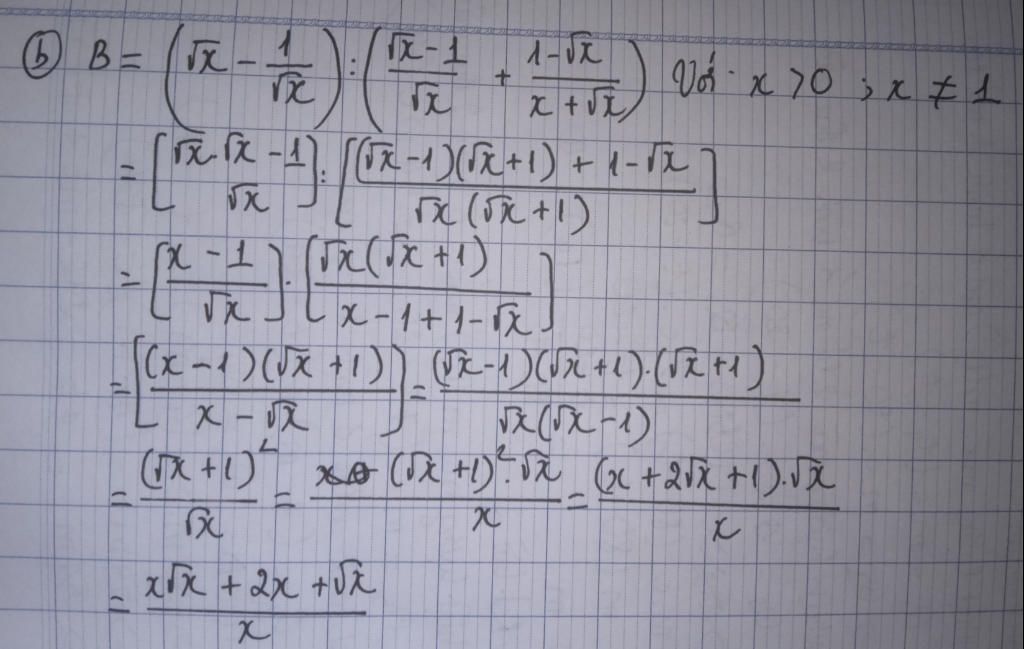 b) B = (√x - 1/√x) : ((√x - 1)/√x + (1 - √x)/(x + √x)) Với x > 0 ; x ≠ 1
= [(√x.√x - 1)/√x] : [((√x - 1)(√x + 1) + 1 - √x)/(√x(√x + 1))]
= [(x - 1)/√x] . [(√x(√x + 1))/(x - 1 + 1 - √x)]
= [((x - 1)(√x + 1))/(x - √x)] = ((√x - 1)(√x + 1).(√x + 1))/(√x(√x - 1))
= (√x + 1)²/√x = ((√x + 1)².√x)/x = ((x + 2√x + 1).√x)/x
= (x√x + 2x + √x)/x